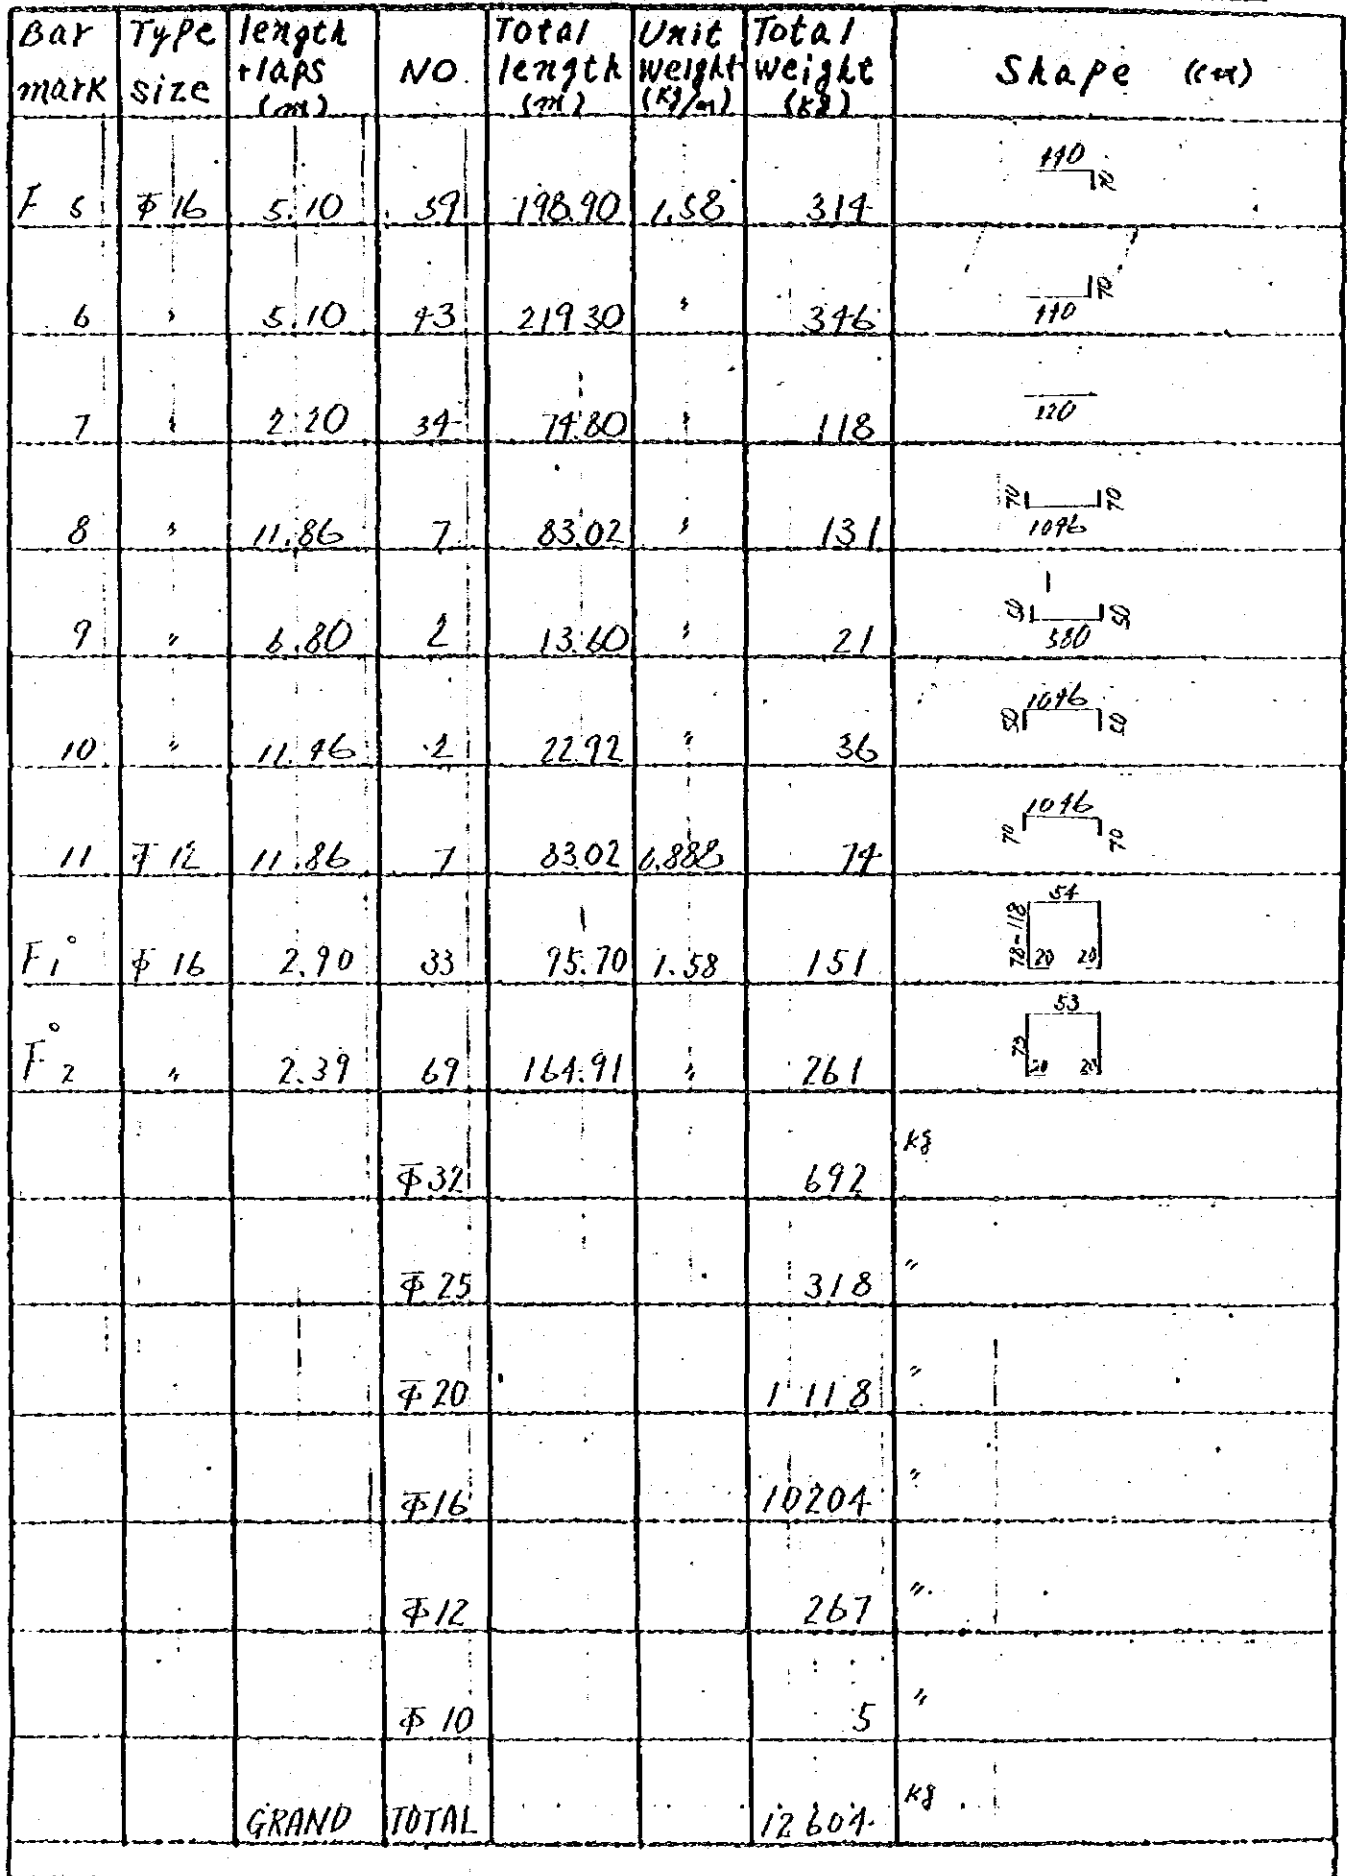 Bar mark | Type size | length +laps (m) | NO. | Total length (m) | Unit weight (Kg/m) | Total weight (Kg) | Shape (cm)
F 5 | Φ 16 | 5.10 | 39 | 198.90 | 1.58 | 314 | 440 70
6 | " | 5.10 | 43 | 219.30 | " | 346 | 440 70
7 | " | 2.20 | 34 | 74.80 | " | 118 | 220
8 | " | 11.86 | 7 | 83.02 | " | 131 | 70 1046 70
9 | " | 6.80 | 2 | 13.60 | " | 21 | 50 580 50
10 | " | 11.46 | 2 | 22.92 | " | 36 | 50 1046 50
11 | Φ 12 | 11.86 | 7 | 83.02 | 0.888 | 74 | 70 1046 70
F1° | Φ 16 | 2.90 | 33 | 95.70 | 1.58 | 151 | 54 78-118 20 20
F2° | " | 2.39 | 69 | 164.91 | " | 261 | 53 73 20 20
Φ 32 | 692 | Kg
Φ 25 | 318 | "
Φ 20 | 1118 | "
Φ 16 | 10204 | "
Φ 12 | 267 | "
Φ 10 | 5 | "
GRAND TOTAL | 12604 | Kg